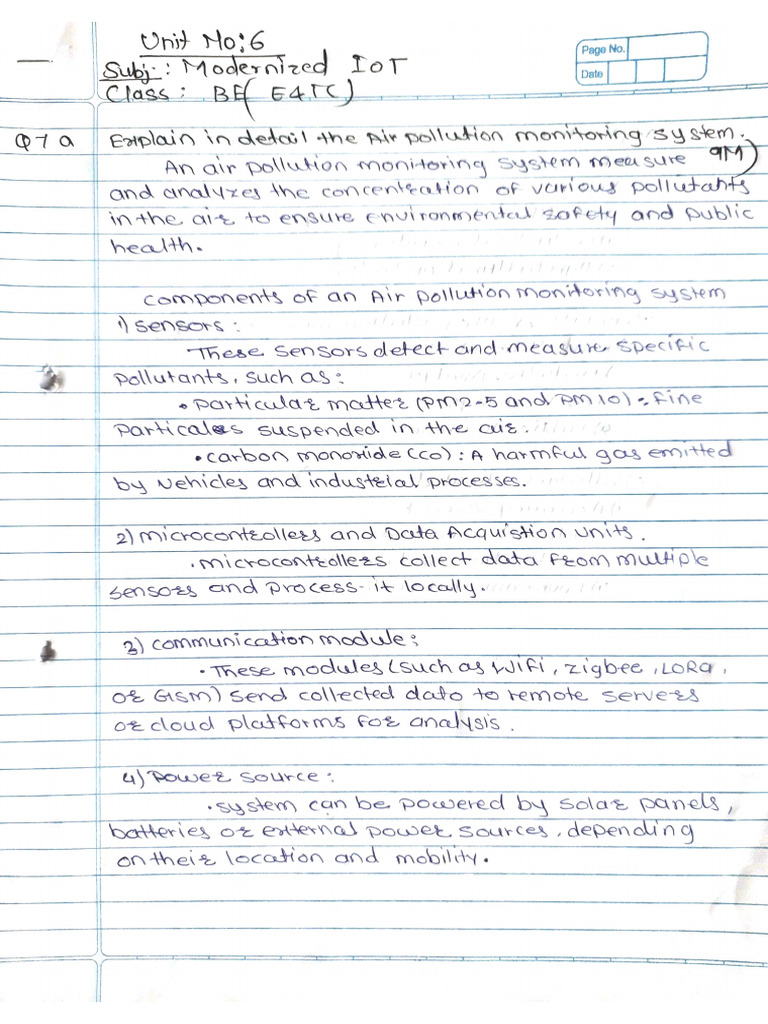 Unit No:6
Page No.
Subj: Modernized IOT
Date
Class: BE( E&TC)
Q7 a Explain in detail the Air pollution monitoring system.
9M)
An air pollution monitoring system measure
and analyzes the concentration of various pollutants
in the air to ensure environmental safety and public
health.
components of an Air pollution monitoring system
1) sensors:
These sensors detect and measure specific
pollutants, such as:
• particular matter (PM2-5 and PM10): Fine
particales suspended in the air.
• carbon monoxide (co): A harmful gas emitted
by vehicles and industrial processes.
2) microcontrollers and Data Acquistion units.
• microcontrollers collect data from multiple
sensors and process it locally.
3) communication module:
• These modules (such as WiFi, zigbee, LORa,
or GSM) send collected data to remote servers
or cloud platforms for analysis.
4) Power source:
• system can be powered by solar panels,
batteries or external power sources, depending
on their location and mobility.